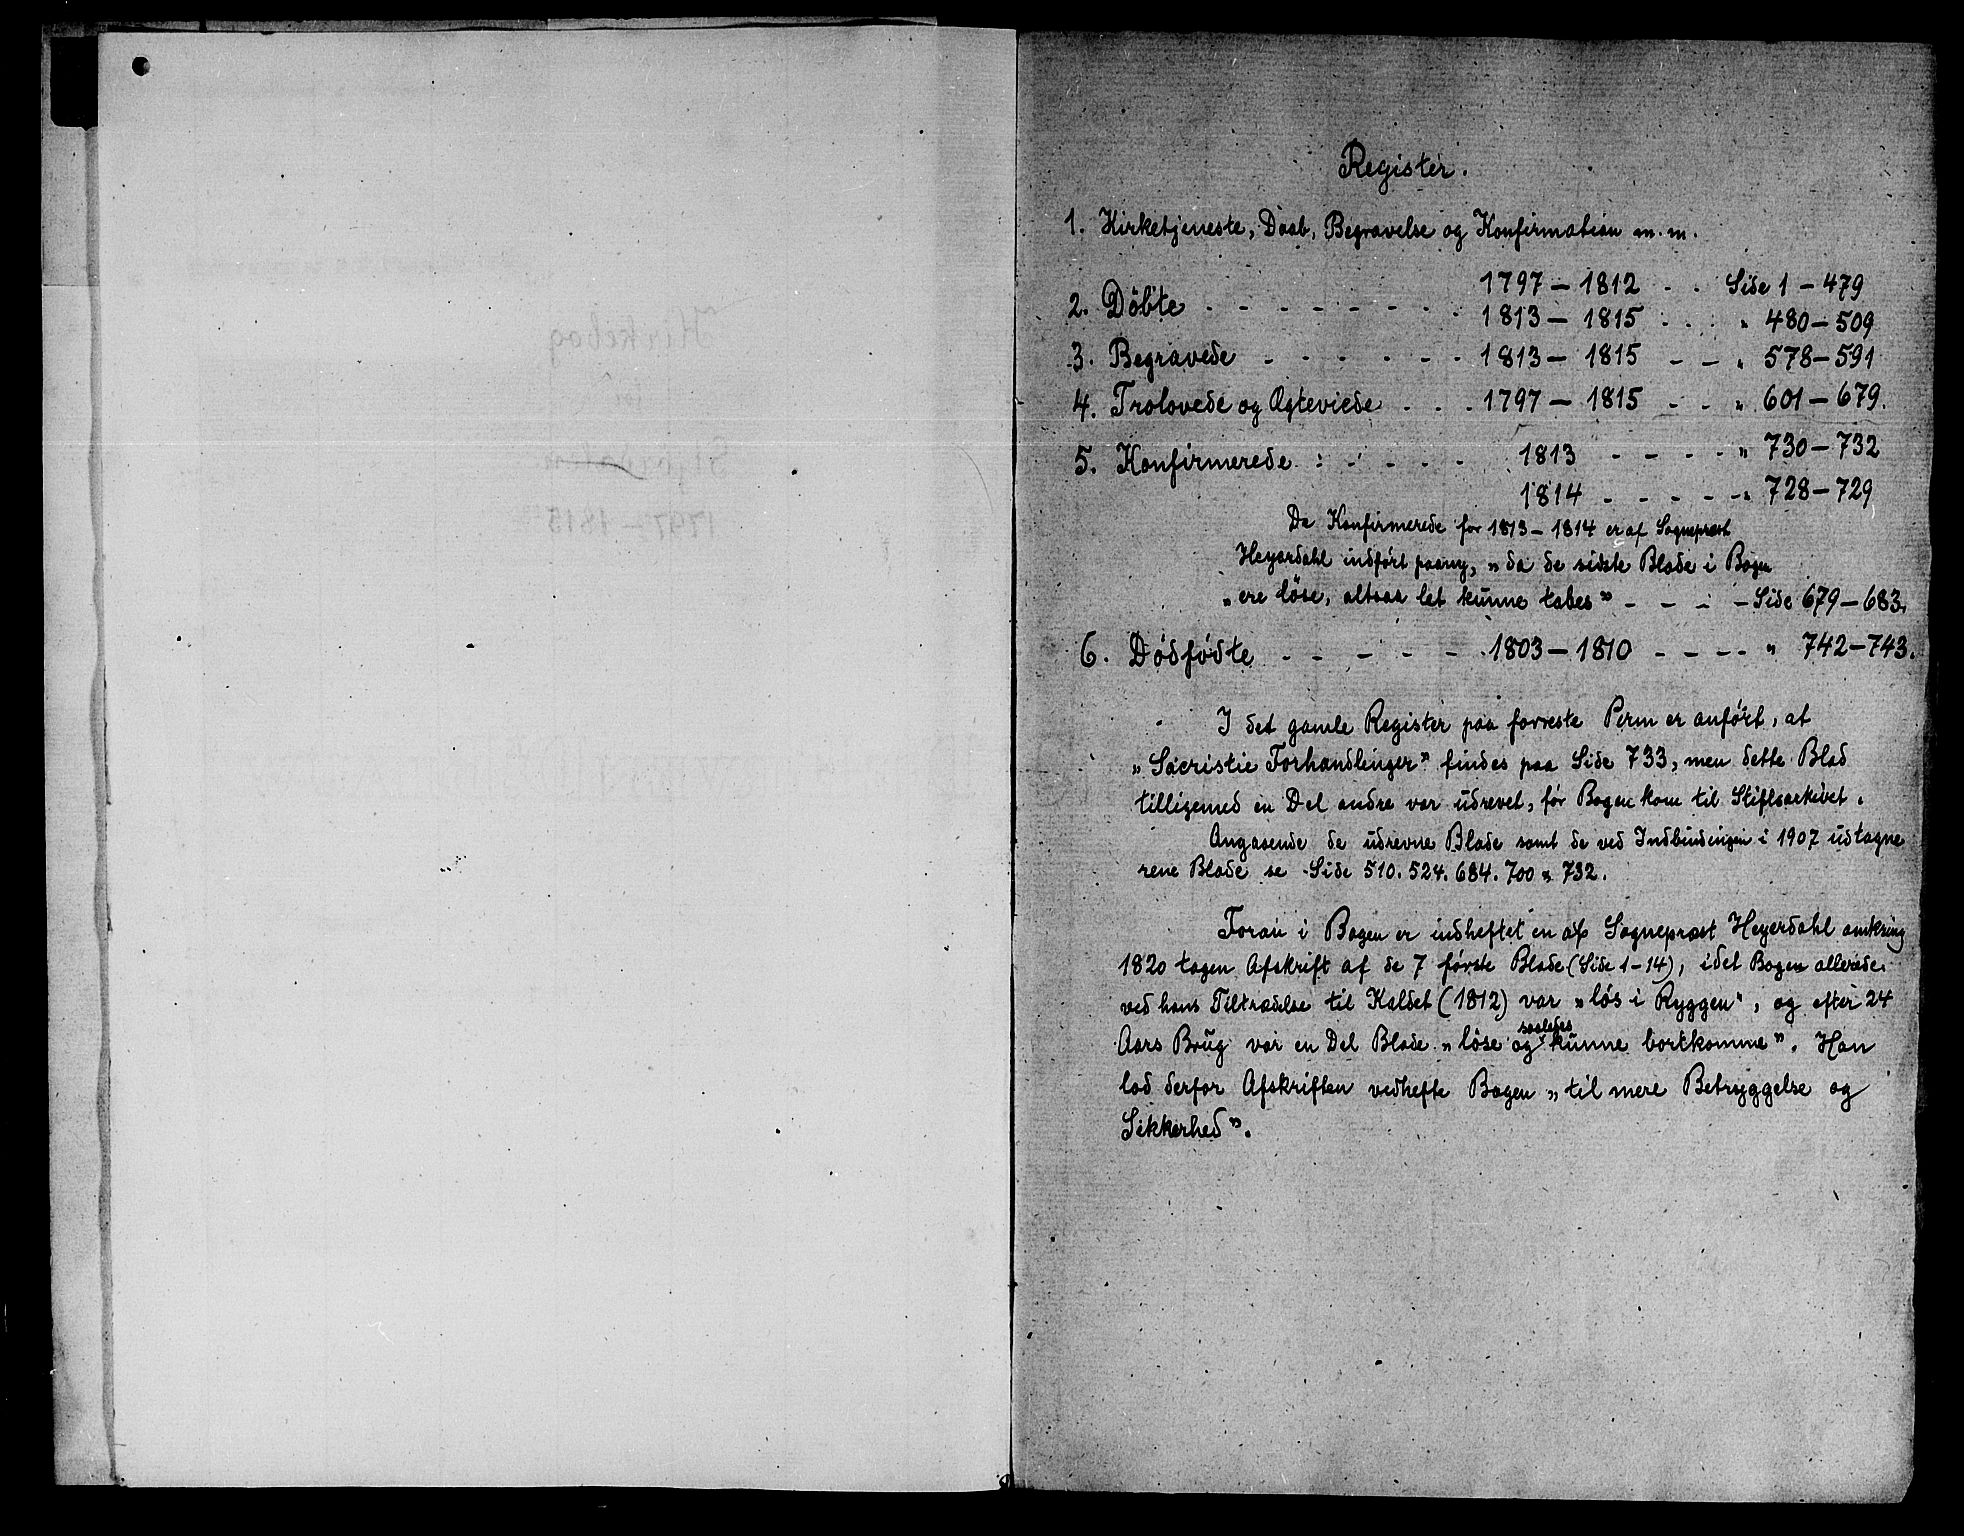 Register.
1. Kirketjeneste, Daab, Begravelse og Konfirmation m. m.
1797 – 1812 . . Side 1 – 479
2. Döbte - - - - - - - -
1813 – 1815 . . . „ 480 – 509
3. Begravede - - - - - - 1813 – 1815 - - „ 578 – 591
4. Trolovede og Ægteviede . . . 1797 – 1815 - - „ 601 – 679.
5. Konfirmerede . . . . . 1813 - - - - „ 730 – 732
1814 - - - - - „ 728 – 729
De Konfirmerede for 1813 – 1814 er af Sogneprest
Heyerdahl indfört paany, „da de sidste Blade i Bogen
„ere löse, altsaa let kunne tabes” - - - - Side 679 – 683.
6. Dödfödte - - - - - 1803 – 1810 - - - - „ 742 – 743.
I det gamle Register paa forreste Perm er anfört, at
„Sacristie Forhandlinger” findes paa Side 733, men dette Blad
tilligemed en Del andre var udrevet, för Bogen kom til Stiftsarkivet.
Angaaende de udrevne Blade samt de ved Indbindingen i 1907 udtagne
rene Blade se Side 510. 524. 684. 700 & 732.
Foran i Bogen er indheftet en af Sogneprest Heyerdahl omkring
1820 tagen Afskrift af de 7 förste Blade (Side 1 – 14), idet Bogen allerede
ved hans Tiltrædelse til Kaldet (1812) var „lös i Ryggen”, og efter 24
Aars Brug var en Del Blade „löse og saaledes kunne bortkomme”. Han
lod derfor Afskriften vedhefte Bogen „til mere Betryggelse og
Sikkerhed”.